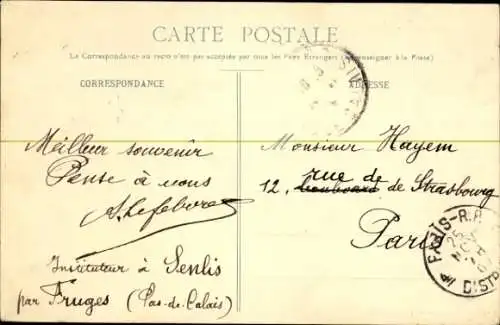 CARTE POSTALE
La Correspondance au recto n'est pas acceptée par tous les Pays Etrangers (Se renseigner à la Poste)
CORRESPONDANCE
ADRESSE
Meilleur souvenir
Pense à vous
A. Lefebvre
Instituteur à Senlis
par Fruges (Pas-de-Calais)
Monsieur Hayem
rue de
12, boulevard de Strasbourg
Paris
PARIS-R.P.
25
DISTR